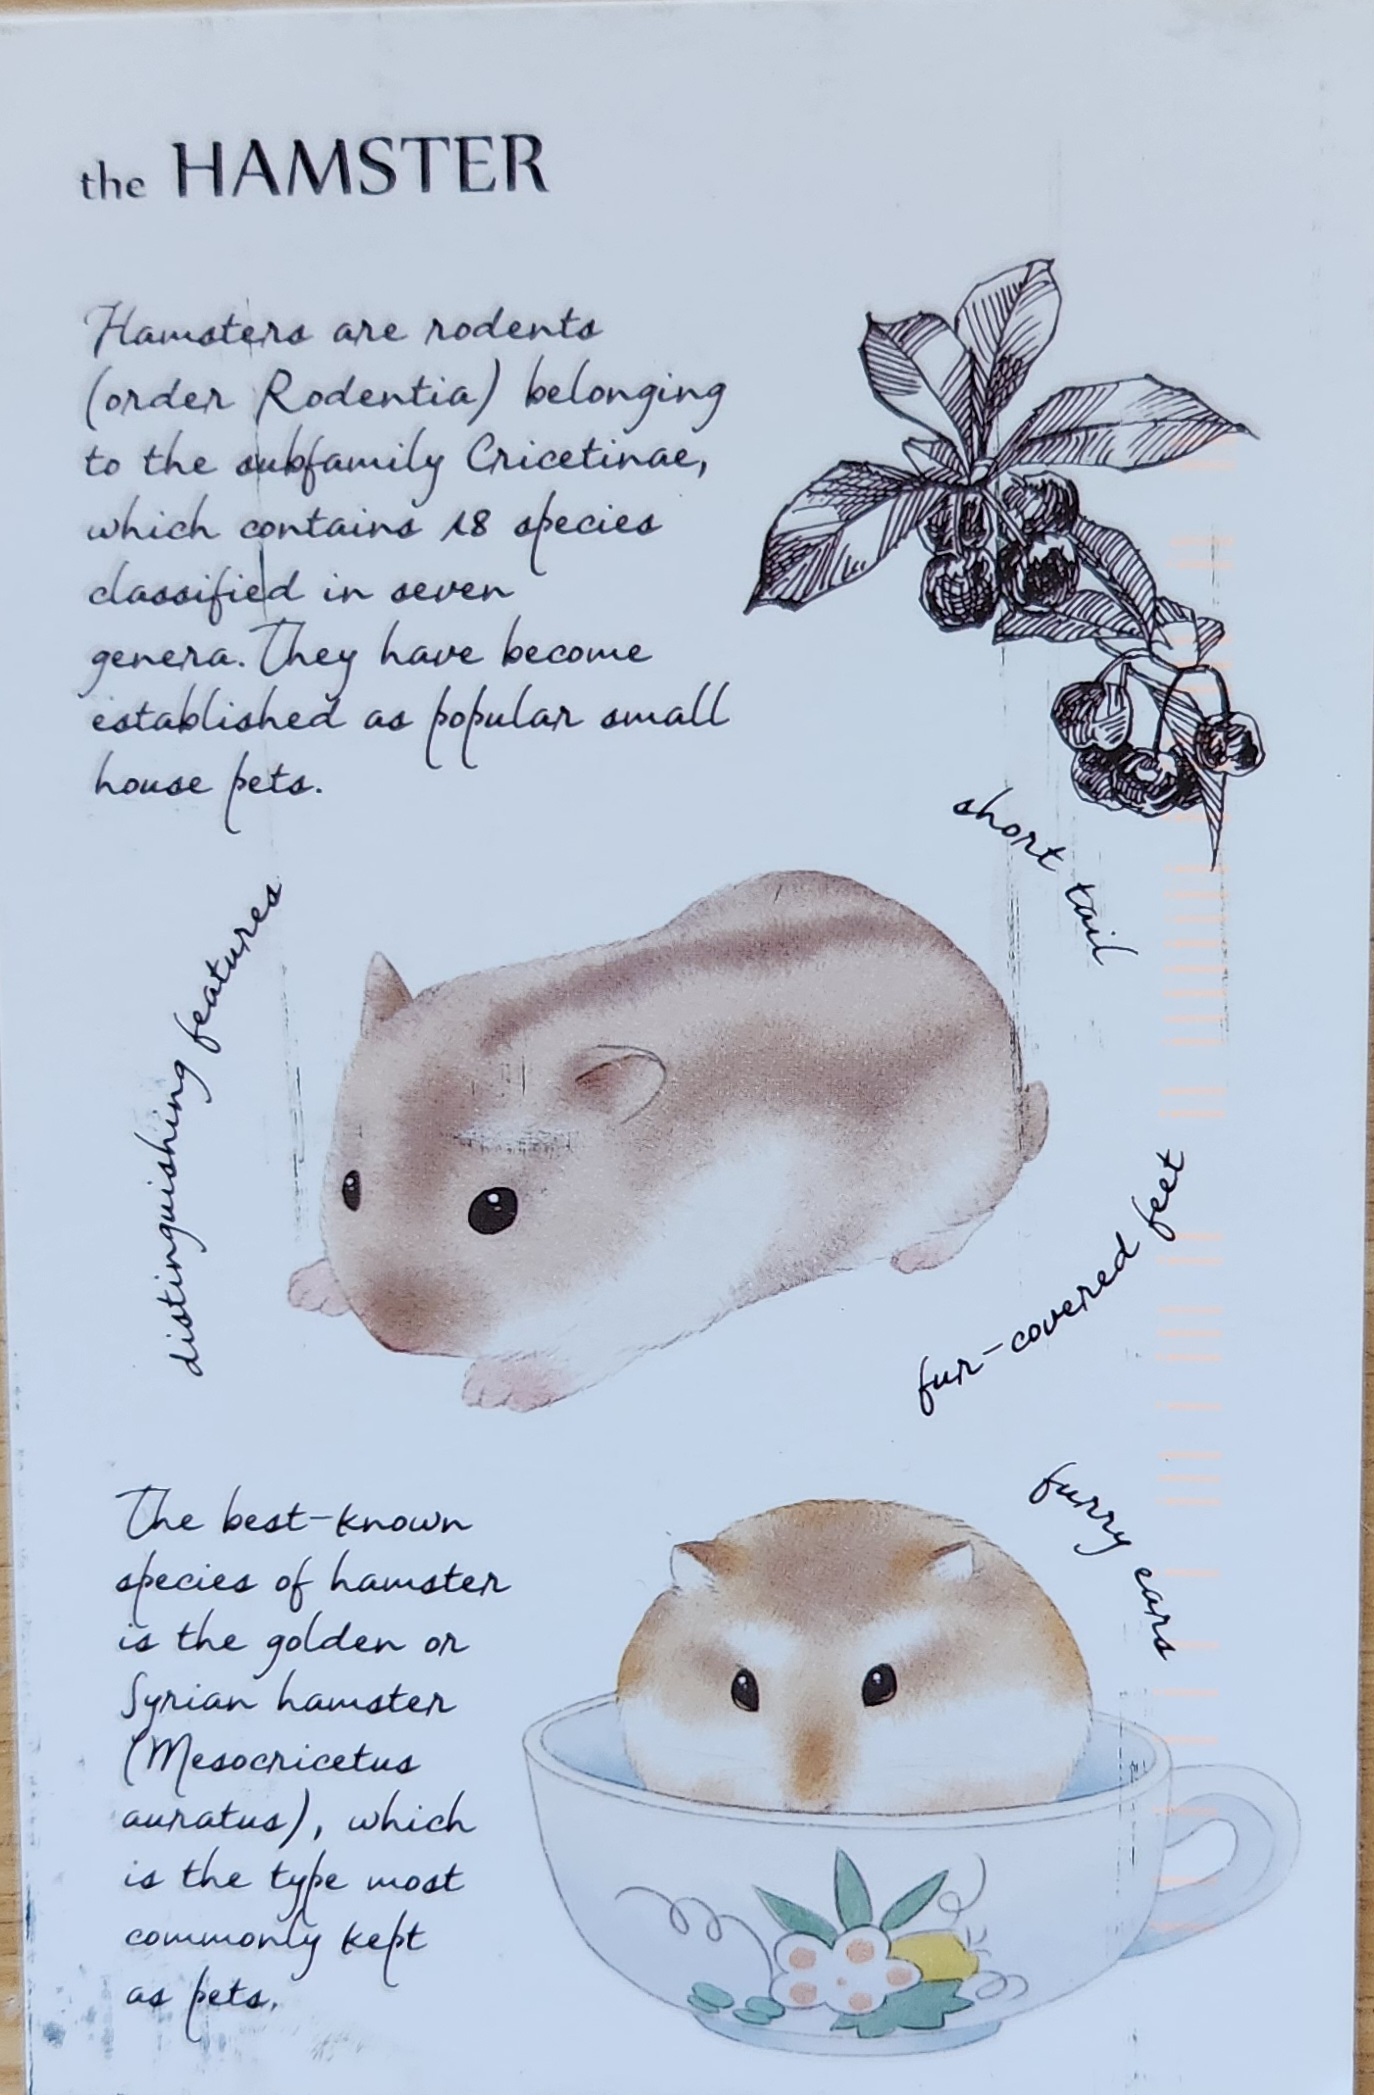 the HAMSTER
Hamsters are rodents
(order Rodentia) belonging
to the subfamily Cricetinae,
which contains 18 species
classified in seven
genera. They have become
established as popular small
house pets.
short tail
distinguishing features
fur-covered feet
furry ears
The best-known
species of hamster
is the golden or
Syrian hamster
(Mesocricetus
auratus), which
is the type most
commonly kept
as pets.